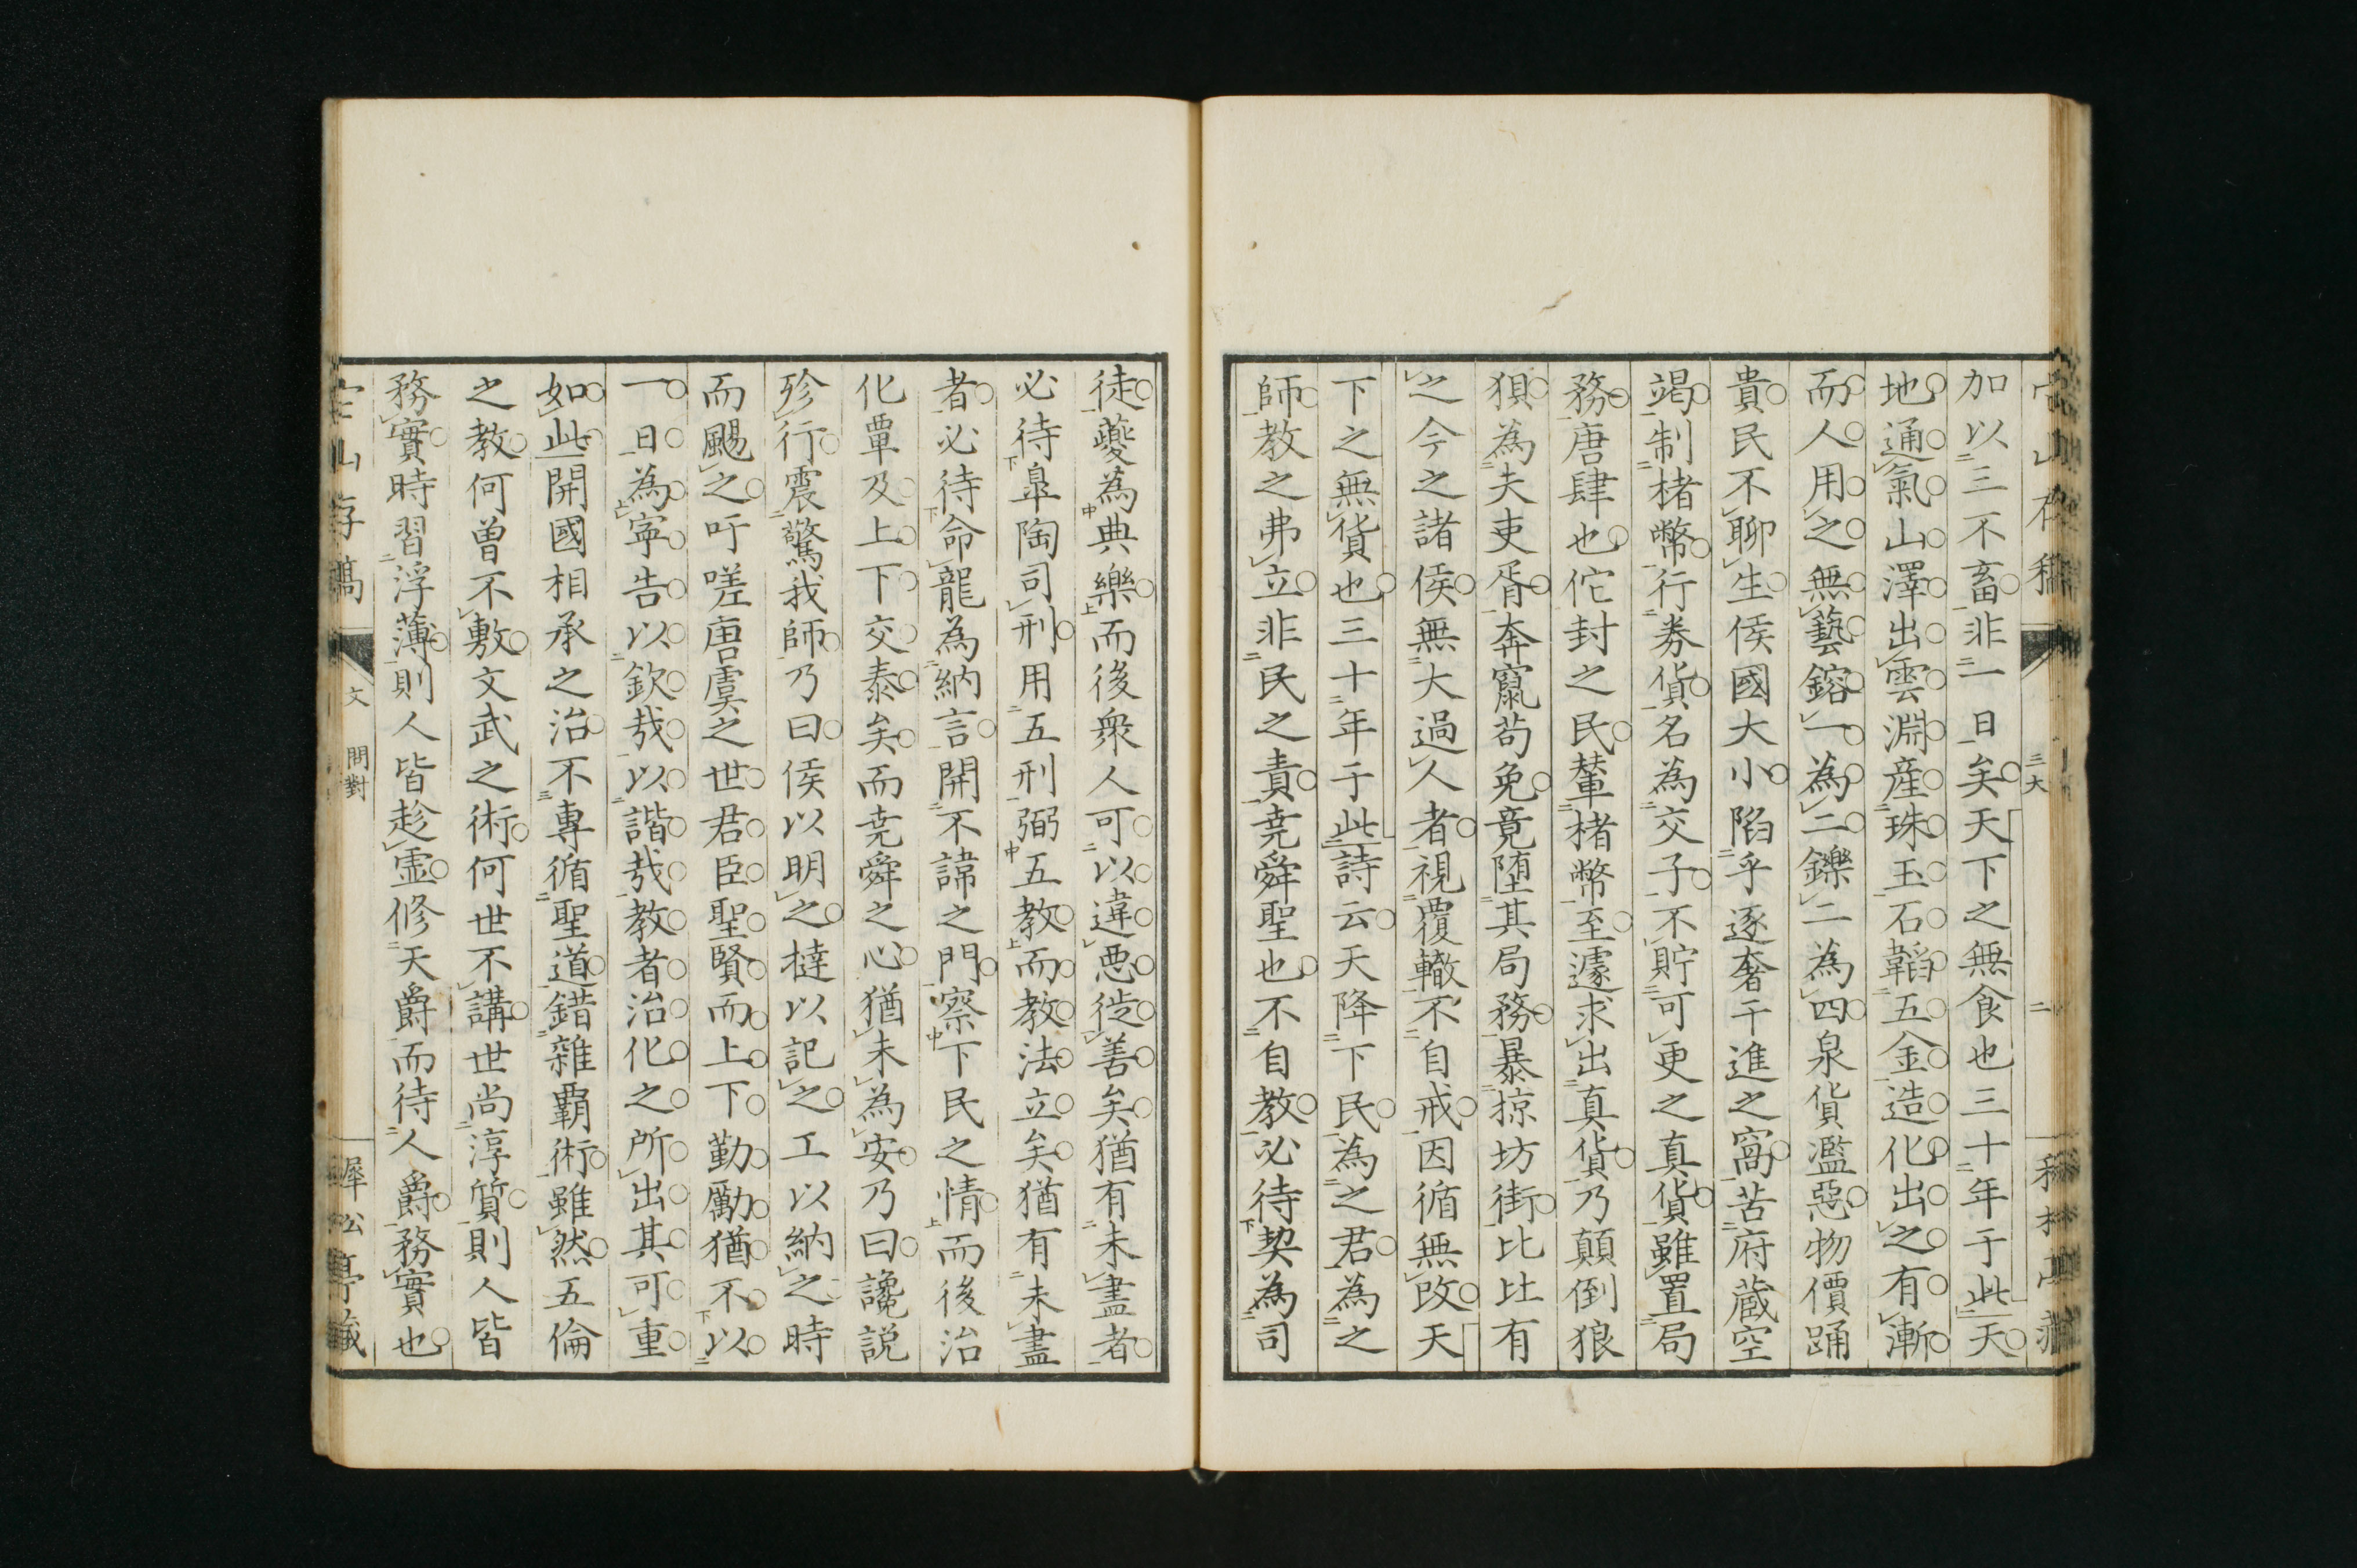 加以三不畜非一日矣天下之無食也三十年于此天
地通氣山澤出雲淵産珠玉石韜五金造化出之有漸
而人用之無藝鎔一為二鑠二為四泉貨濫惡物價踊
貴民不聊生侯國大小陷乎逐奢干進之窩苦府蔵空
竭制楮幣行券貨名為交子不貯可更之真貨雖置局
務唐肆也佗封之民輦楮幣至遽求出真貨乃顛倒狼
狽為夫吏胥奔竄苟免竟堕其局務暴掠坊街比比有
之今之諸侯無大過人者視覆轍不自戒因循無改天
下之無貨也三十年于此詩云天降下民為之君為之
師教之弗立非民之責尭舜聖也不自教必待契為司
徒夔為典樂而後衆人可以違悪徙善矣猶有未盡者
必待皐陶司刑用五刑弼五教而教法立矣猶有未盡
者必待命龍為納言開不諱之門察下民之情而後治
化覃及上下交泰矣而尭舜之心猶未為安乃曰讒説
殄行震驚我師乃曰侯以明之撻以記之工以納之時
而颺之吁嗟唐虞之世君臣聖賢而上下勤勵猶不以
一日為寧告以欽㢤以諧㢤教者治化之所出其可重
如此開國相承之治不專循聖道錯雜覇術雖然五倫
之教何曽不敷文武之術何世不講世尚淳質則人皆
務實時習浮薄則人皆趁虛修天爵而待人爵務實也
山存稿
文 問對
犀松亭蔵